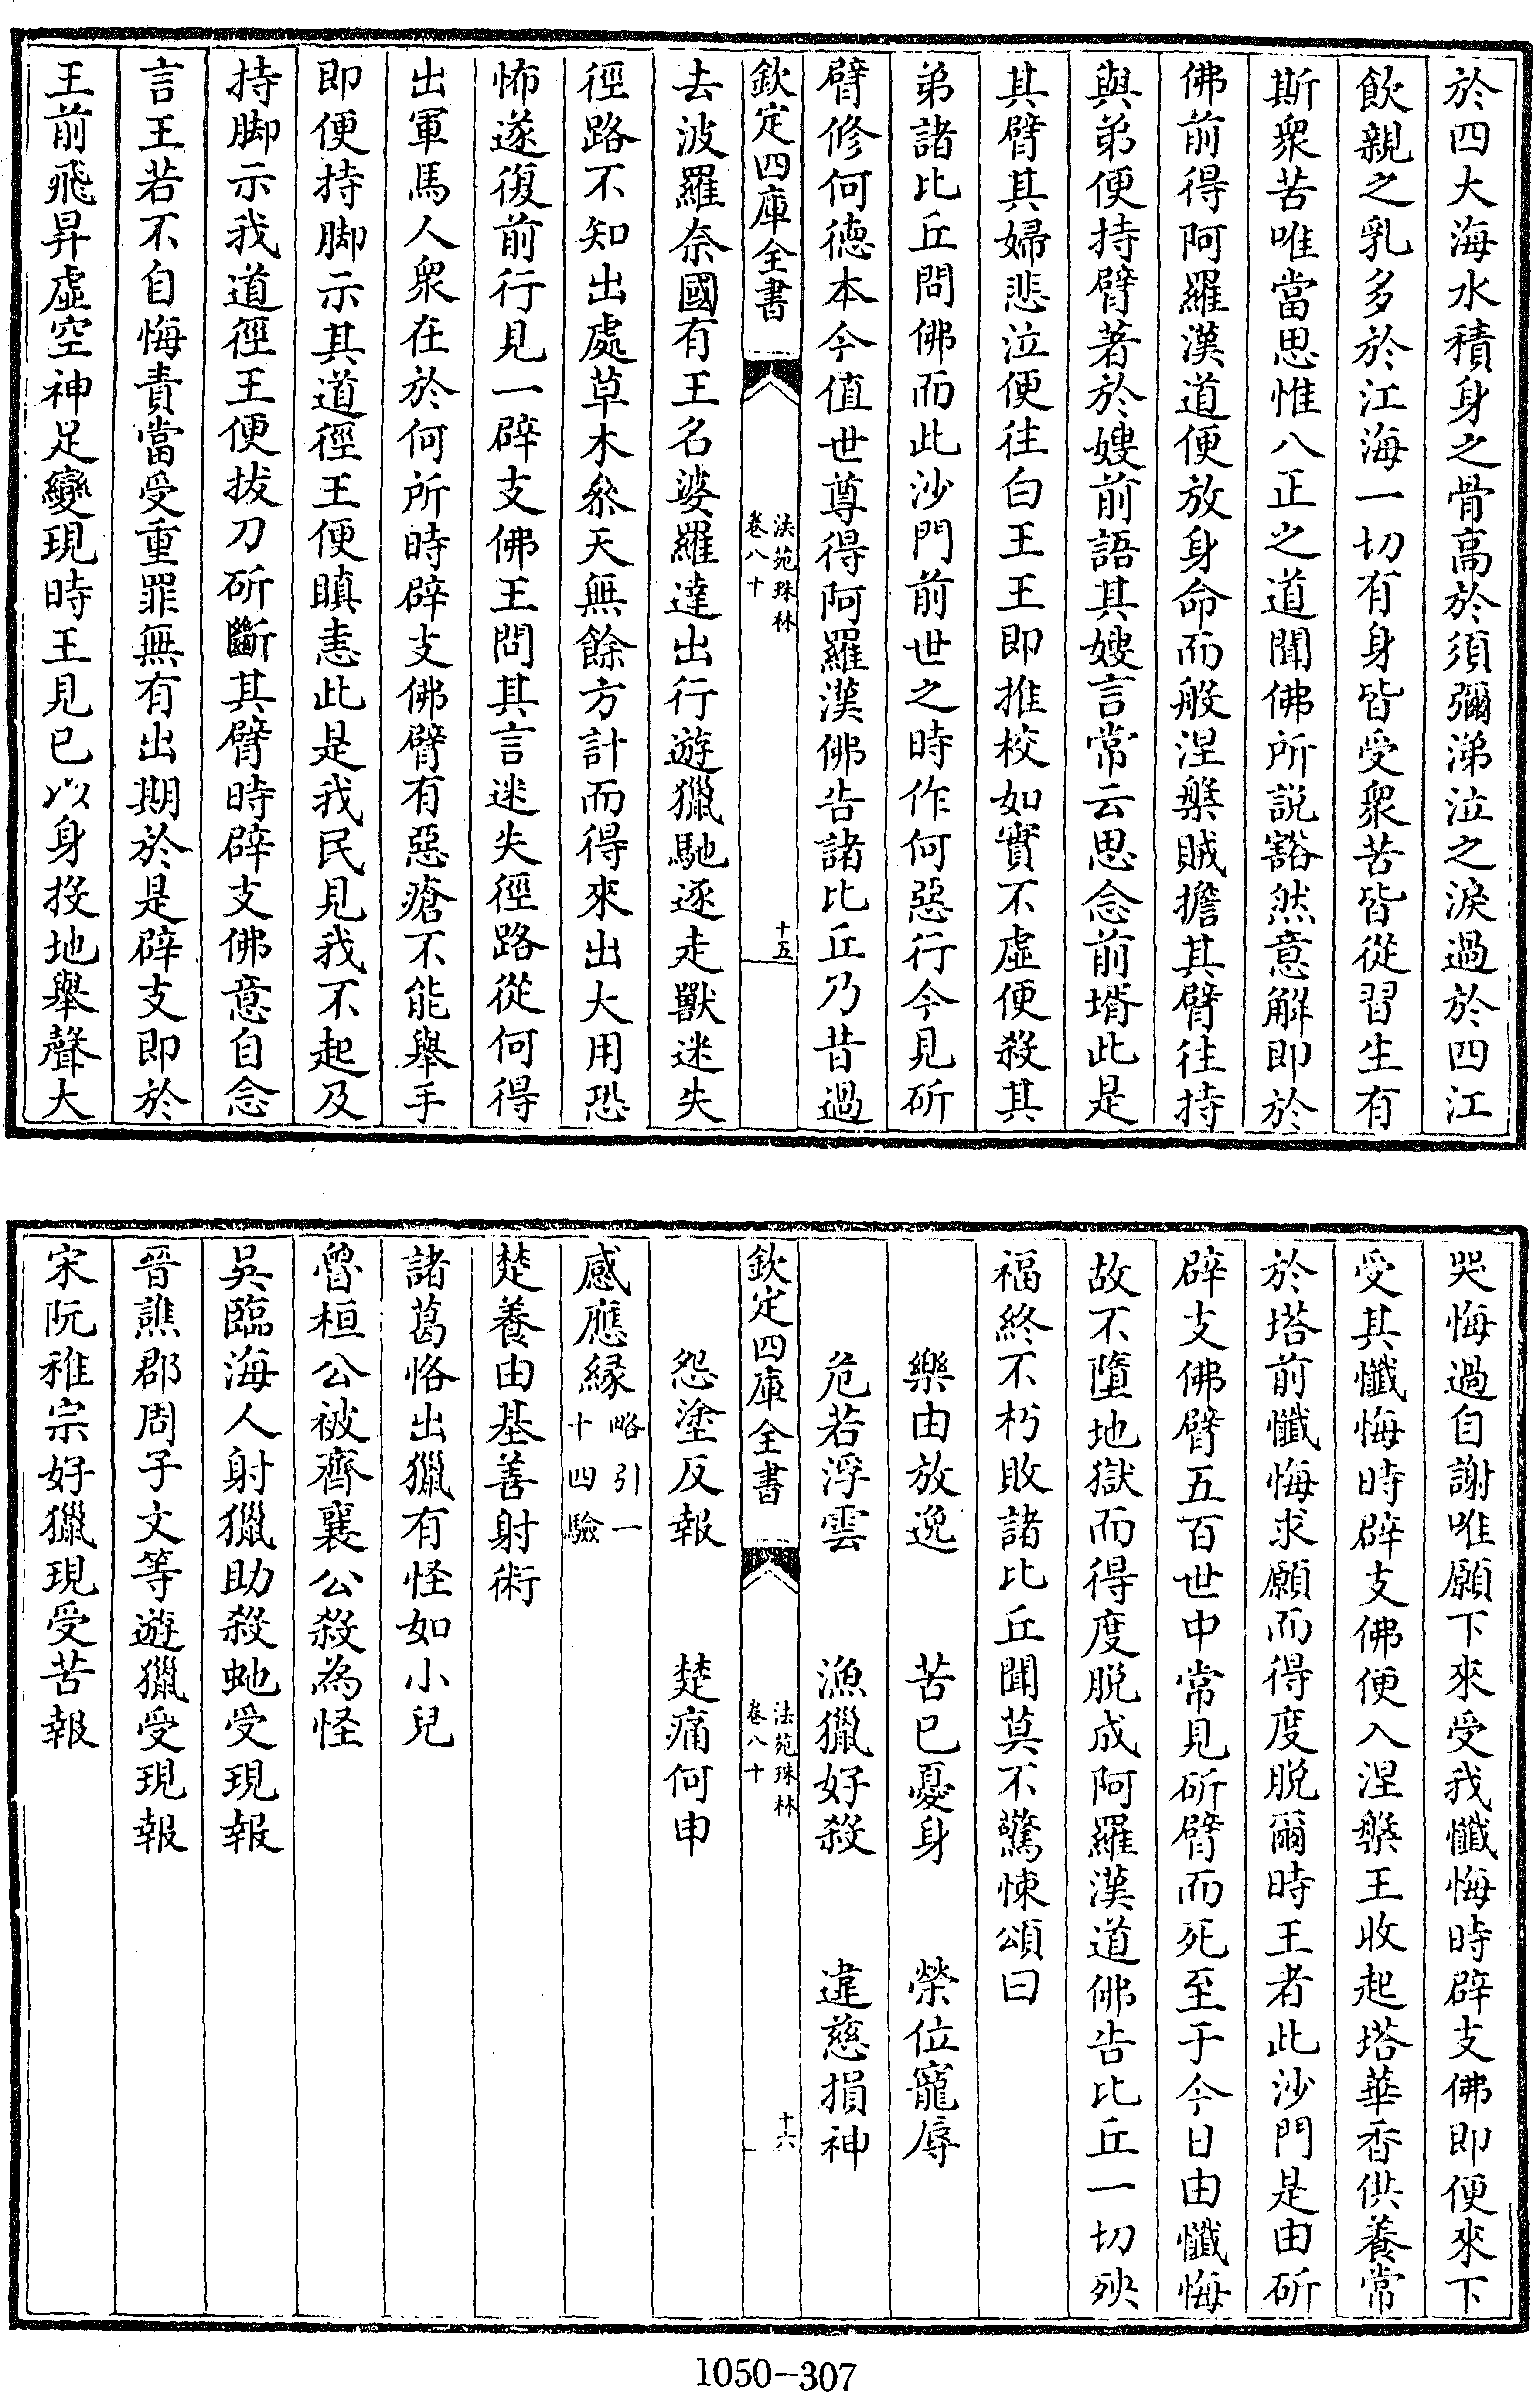 於四大海水積身之骨高於須彌涕泣之淚過於四江
飲親之乳多於江海一切有身皆受衆苦皆從習生有
斯衆苦唯當思惟八正之道聞佛所說豁然意解即於
佛前得阿羅漢道便放身命而般涅槃賊擔其臂往持
與弟便持臂著於嫂前語其嫂言常云思念前壻此是
其臂其婦悲泣便往白王王即推校如實不虛便殺其
弟諸比丘問佛而此沙門前世之時作何惡行今見斫
臂修何德本今值世尊得阿羅漢佛告諸比丘乃昔過
欽定四庫全書
法苑珠林
卷八十
十五
去波羅奈國有王名婆羅達出行遊獵馳逐走獸迷失
徑路不知出處草木叅天無餘方計而得來出大用恐
怖遂復前行見一辟支佛王問其言迷失徑路從何得
出軍馬人衆在於何所時辟支佛臂有惡瘡不能舉手
即便持脚示其道徑王便瞋恚此是我民見我不起及
持脚示我道徑王便拔刀斫斷其臂時辟支佛意自念
言王若不自悔責當受重罪無有出期於是辟支即於
王前飛昇虛空神足變現時王見已以身投地舉聲大
哭悔過自謝唯願下來受我懺悔時辟支佛即便來下
受其懺悔時辟支佛便入涅槃王收起塔華香供養常
於塔前懺悔求願而得度脫爾時王者此沙門是由斫
辟支佛臂五百世中常見斫臂而死至于今日由懺悔
故不墮地獄而得度脫成阿羅漢道佛告比丘一切殃
福終不朽敗諸比丘聞莫不驚悚頌曰
樂由放逸　苦已憂身　榮位寵辱
危若浮雲　漁獵好殺　違慈損神
欽定四庫全書
法苑珠林
卷八十
十六
怨塗反報　楚痛何申
感應緣略引一十四驗
楚養由基善射術
諸葛恪出獵有怪如小兒
魯桓公被齊襄公殺為怪
吳臨海人射獵助殺虵受現報
晉譙郡周子文等遊獵受現報
宋阮稚宗好獵現受苦報
1050-307